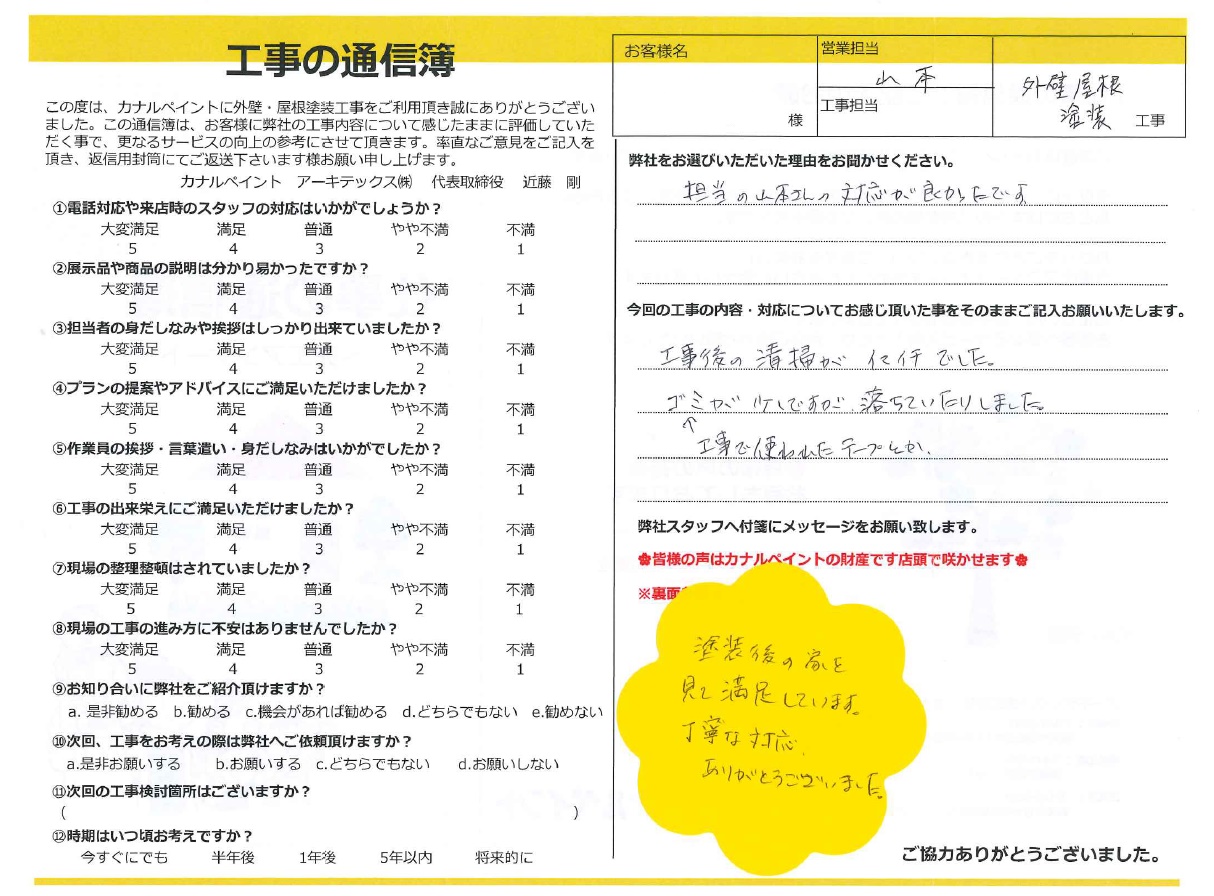 工事の通信簿
この度は、カナルペイントに外壁・屋根塗装工事をご利用頂き誠にありがとうござい
ました。この通信簿は、お客様に弊社の工事内容について感じたままに評価していた
だく事で、更なるサービスの向上の参考にさせて頂きます。率直なご意見をご記入を
頂き、返信用封筒にてご返送下さいます様お願い申し上げます。
カナルペイント アーキテックス㈱ 代表取締役 近藤 剛
①電話対応や来店時のスタッフの対応はいかがでしょうか？
大変満足 満足 普通 やや不満 不満
5 4 3 2 1
②展示品や商品の説明は分かり易かったですか？
大変満足 満足 普通 やや不満 不満
5 4 3 2 1
③担当者の身だしなみや挨拶はしっかり出来ていましたか？
大変満足 満足 普通 やや不満 不満
5 4 3 2 1
④プランの提案やアドバイスにご満足いただけましたか？
大変満足 満足 普通 やや不満 不満
5 4 3 2 1
⑤作業員の挨拶・言葉遣い・身だしなみはいかがでしたか？
大変満足 満足 普通 やや不満 不満
5 4 3 2 1
⑥工事の出来栄えにご満足いただけましたか？
大変満足 満足 普通 やや不満 不満
5 4 3 2 1
⑦現場の整理整頓はされていましたか？
大変満足 満足 普通 やや不満 不満
5 4 3 2 1
⑧現場の工事の進み方に不安はありませんでしたか？
大変満足 満足 普通 やや不満 不満
5 4 3 2 1
⑨お知り合いに弊社をご紹介頂けますか？
a. 是非勧める b.勧める c.機会があれば勧める d.どちらでもない e.勧めない
⑩次回、工事をお考えの際は弊社へご依頼頂けますか？
a.是非お願いする b.お願いする c.どちらでもない d.お願いしない
⑪次回の工事検討箇所はございますか？
( )
⑫時期はいつ頃お考えですか？
今すぐにでも 半年後 1年後 5年以内 将来的に
お客様名
様
営業担当
山本
工事担当
外壁屋根
塗装 工事
弊社をお選びいただいた理由をお聞かせください。
担当の山本さんの対応が良かったです
今回の工事の内容・対応についてお感じ頂いた事をそのままご記入お願いいたします。
工事後の清掃がイマイチでした。
ゴミが少しですが、落ちていたりしました。
↑
工事で使われたテープとか、
弊社スタッフへ付箋にメッセージをお願い致します。
✿皆様の声はカナルペイントの財産です店頭で咲かせます✿
※裏面
塗装後の家を
見て満足しています。
丁寧な対応、
ありがとうございました。
ご協力ありがとうございました。